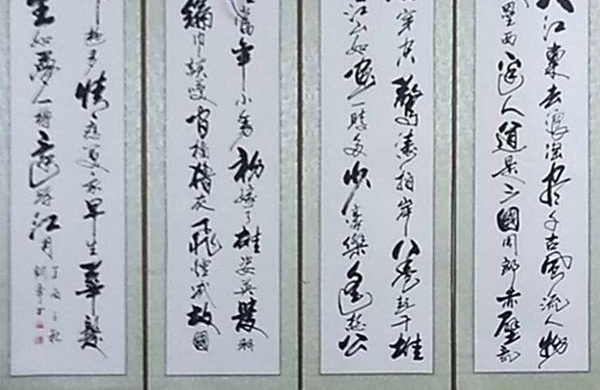 大江東去浪淘盡千古風流人物
壘西邊人道是三國周郎赤壁亂
穿空驚濤拍岸卷起千堆
江山如畫一時多少豪傑遙想公
當年小喬初嫁了雄姿英發羽
綸巾談笑間檣櫓灰飛煙滅故國
遊多情應笑我早生華髮
生如夢一樽還酹江月
丁酉之秋